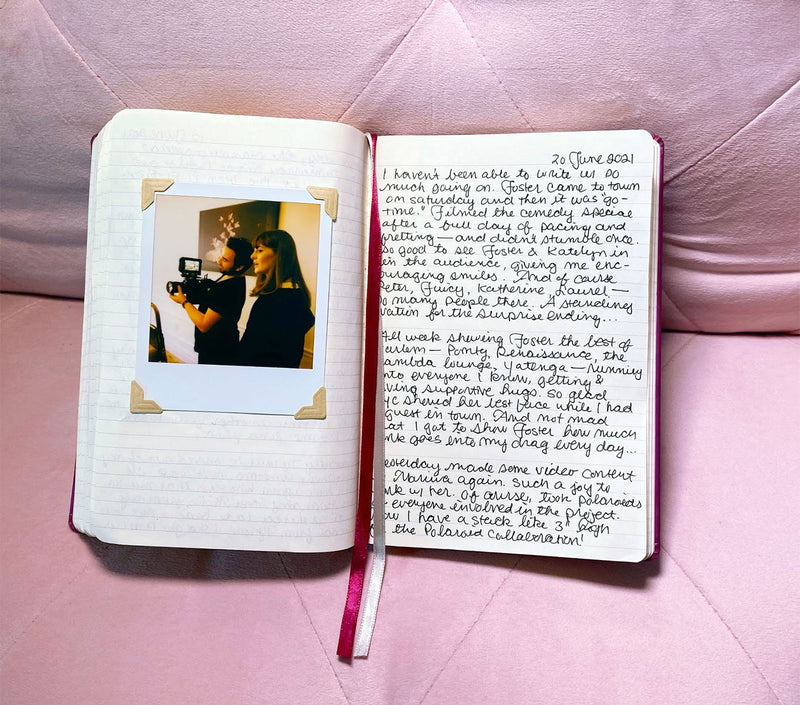 20 June 2021
I haven't been able to write w/ so
much going on. Foster came to town
on saturday and then it was "go-
time." Filmed the comedy special
after a full day of pacing and
fretting—and didn't stumble once.
So good to see Foster & Katelyn in
in the audience, giving me enc-
ouraging smiles. And of course
Peter, Juicy, Katherine, Laurel—
so many people there. A standing
vation for the surprise ending...
All week showing Foster the best of
arlem— Ponty, Renaissance, the
ambda lounge, Yatenga—Running
nto everyone I know, getting &
iving supportive hugs. So glad
YC showed her best face while I had
guest in town. And not mad
at I got to show Foster how much
rk goes into my drag every day...
esterday made some video content
again. Such a joy to
rk w/ her. Of course, took Polaroids
everyone involved in the project.
ow I have a stack like 3" high
the Polaroid Collaboration!